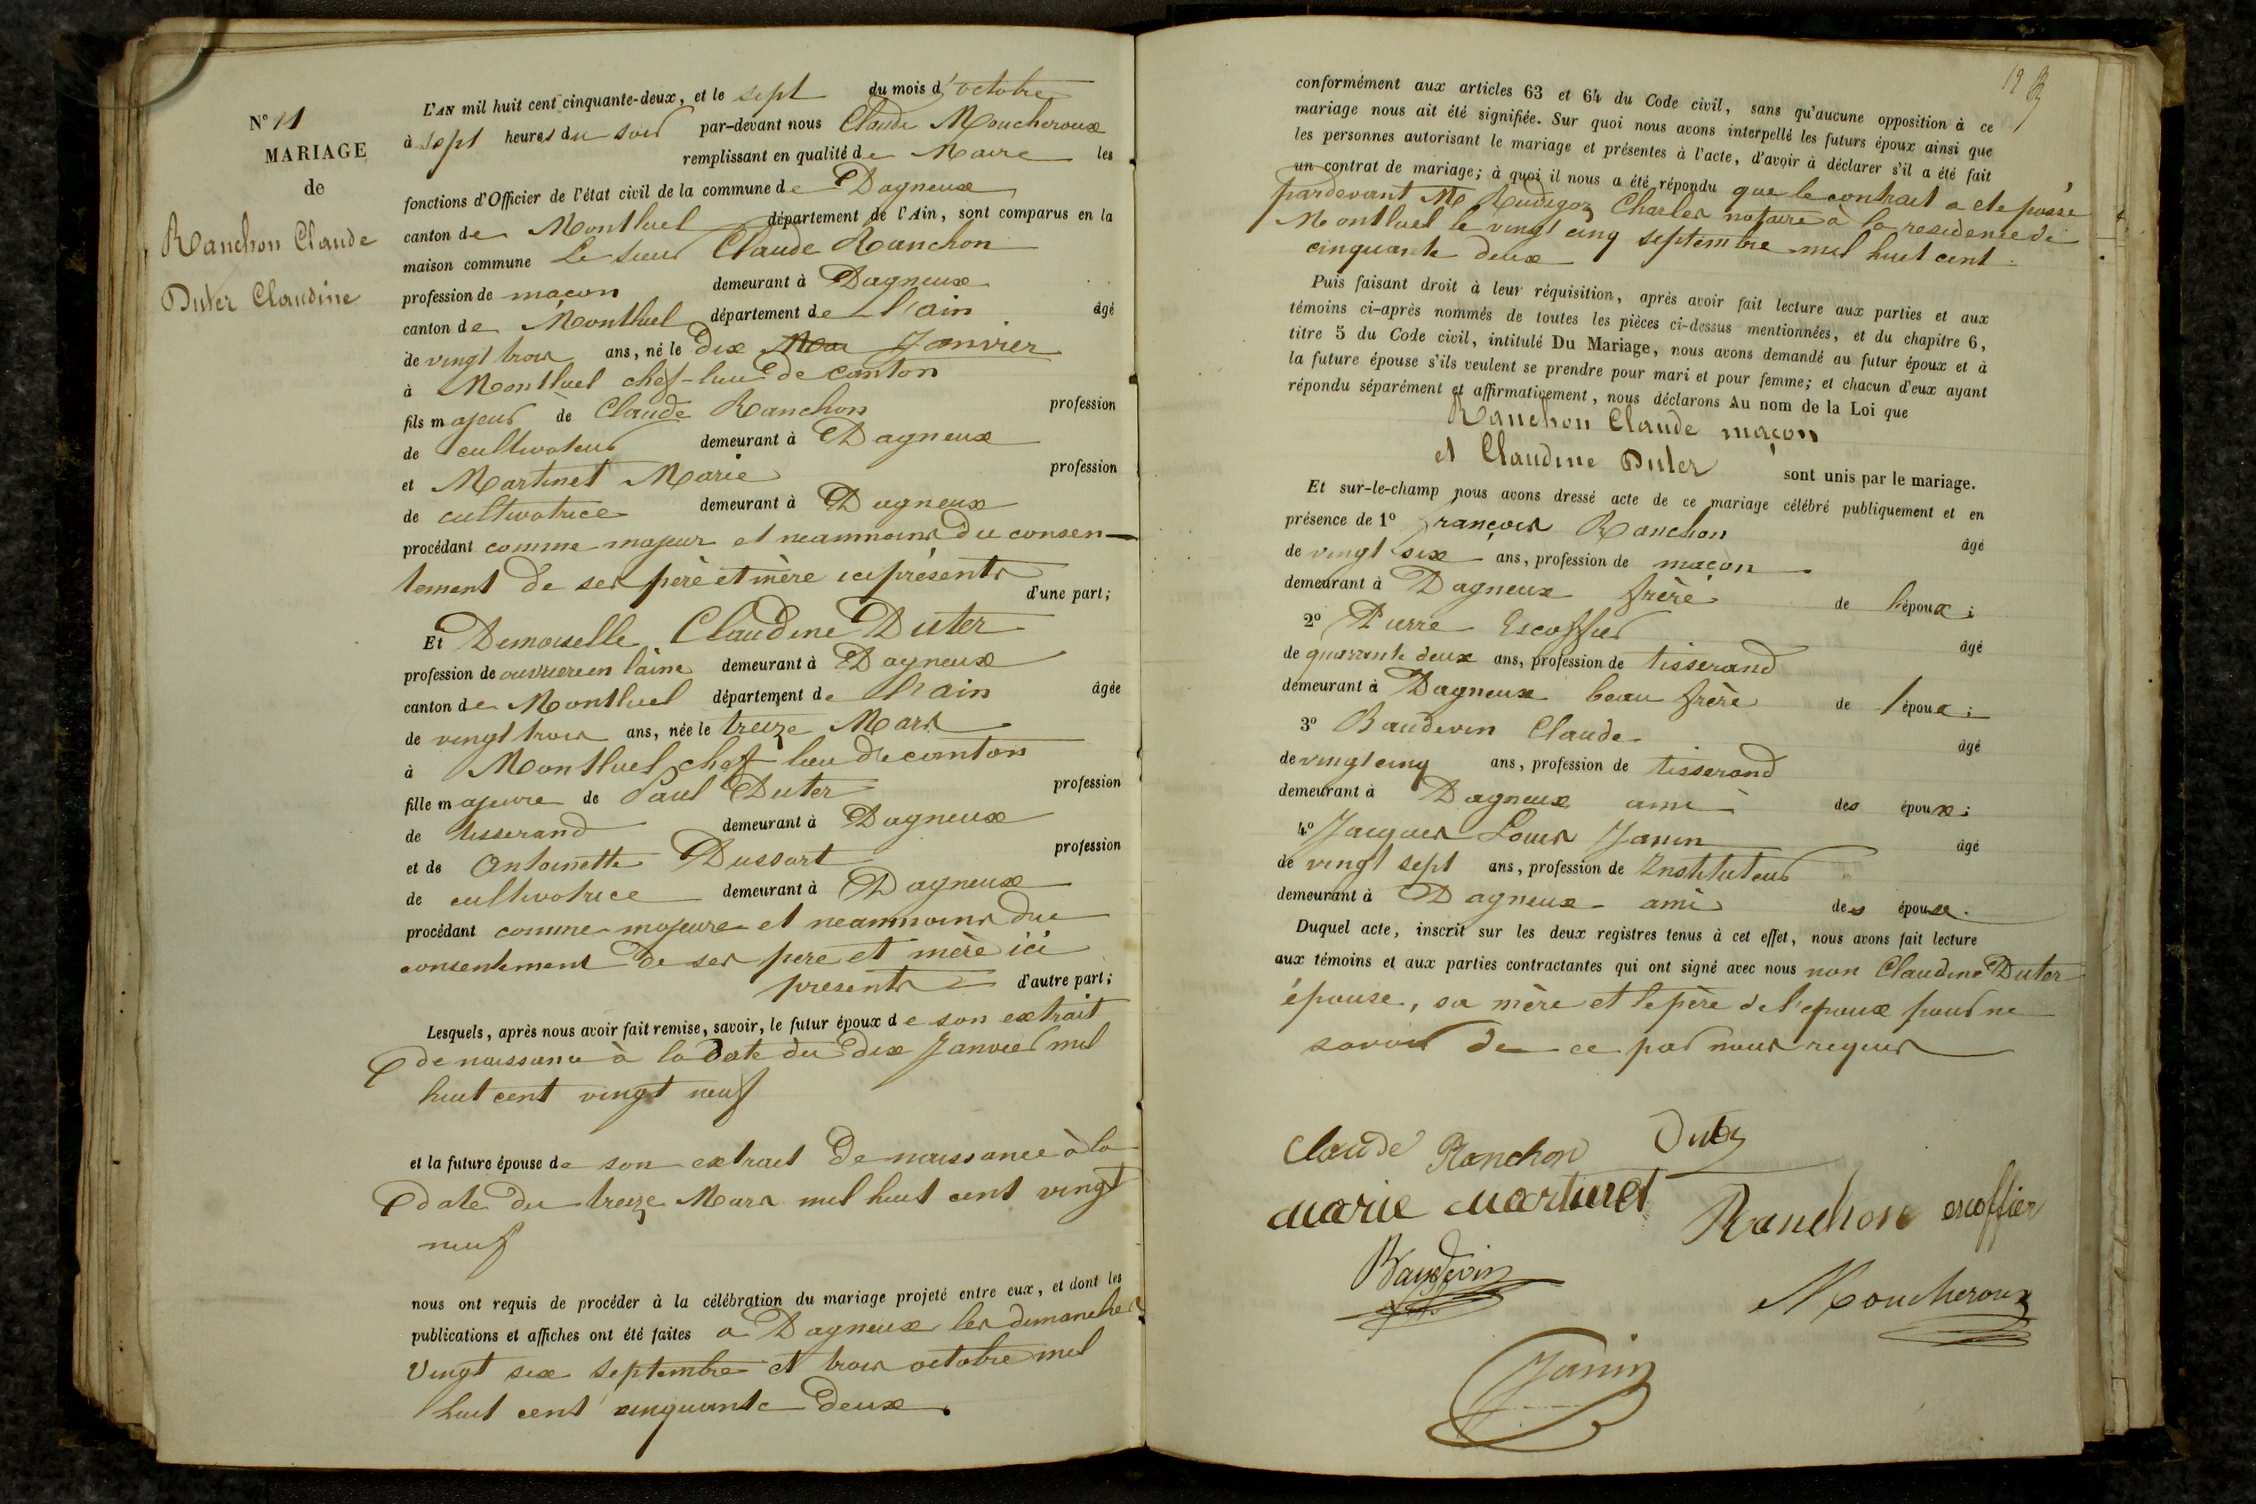 N° 11
MARIAGE
de
Ranchon Claude
Duter Claudine
L'AN mil huit cent cinquante-deux, et le sept du mois d'octobre
à sept heures du soir par-devant nous Claude Moucheroux
remplissant en qualité de Maire les
fonctions d'Officier de l'état civil de la commune de Dagneux
canton de Montluel département de l'Ain, sont comparus en la
maison commune Le sieur Claude Ranchon
profession de maçon demeurant à Dagneux
canton de Montluel département de l'ain âgé
de vingt trois ans, né le dix Janvier
à Montluel chef-lieu de canton
fils majeur de Claude Ranchon profession
de cultivateur demeurant à Dagneux
et Martinet Marie profession
de cultivatrice demeurant à Dagneux
procédant comme majeur et neanmoins du consen-
tement de ses père et mère ici présents
d'une part;
Et Demoiselle Claudine Duter
profession de ouvriere en laine demeurant à Dagneux
canton de Montluel département de l'ain âgée
de vingt trois ans, née le treize Mars
à Montluel chef lieu de canton
fille majeure de Paul Duter profession
de tisserand demeurant à Dagneux
et de Antoinette Dussart profession
de cultivatrice demeurant à Dagneux
procédant comme majeure et neanmoins du
consentement de ses pere et mère ici
presents d'autre part;
Lesquels, après nous avoir fait remise, savoir, le futur époux de son extrait
de naissance à la date du dix Janvier mil
huit cent vingt neuf
et la future épouse de son extrait de naissance à la
date du treize Mars mil huit cent vingt
neuf
nous ont requis de procéder à la célébration du mariage projeté entre eux, et dont les
publications et affiches ont été faites a Dagneux les dimanches
vingt six septembre et trois octobre mil
huit cent cinquante deux.
19
conformément aux articles 63 et 64 du Code civil, sans qu'aucune opposition à ce
mariage nous ait été signifiée. Sur quoi nous avons interpellé les futurs époux ainsi que
les personnes autorisant le mariage et présentes à l'acte, d'avoir à déclarer s'il a été fait
un contrat de mariage; à quoi il nous a été répondu que le contrat a ete passé
pardevant Me Rudigoz Charles notaire à la residence de
Montluel le vingt cinq septembre mil huit cent
cinquante deux
Puis faisant droit à leur réquisition, après avoir fait lecture aux parties et aux
témoins ci-après nommés de toutes les pièces ci-dessus mentionnées, et du chapitre 6,
titre 5 du Code civil, intitulé Du Mariage, nous avons demandé au futur époux et à
la future épouse s'ils veulent se prendre pour mari et pour femme; et chacun d'eux ayant
répondu séparément et affirmativement, nous déclarons Au nom de la Loi que
Ranchon Claude maçon
et Claudine Duter sont unis par le mariage.
Et sur-le-champ nous avons dressé acte de ce mariage célébré publiquement et en
présence de 1° françois Ranchon âgé
de vingt six ans, profession de maçon
demeurant à Dagneux frère de l'époux;
2° Pierre Escoffier âgé
de quarante deux ans, profession de tisserand
demeurant à Dagneux beau frère de l'époux;
3° Baudevin Claude âgé
de vingt cinq ans, profession de tisserand
demeurant à Dagneux ami des époux;
4° Jacques Louis Janin âgé
de vingt sept ans, profession de Instituteur
demeurant à Dagneux ami des époux.
Duquel acte, inscrit sur les deux registres tenus à cet effet, nous avons fait lecture
aux témoins et aux parties contractantes qui ont signé avec nous non Claudine Duter
épouse, sa mère et le père de l'epoux pour ne
savoir de ce par nous requis
Claude Ranchon Duter
marie martinet Ranchon escoffier
Baudevin
Moucheroux
Janin